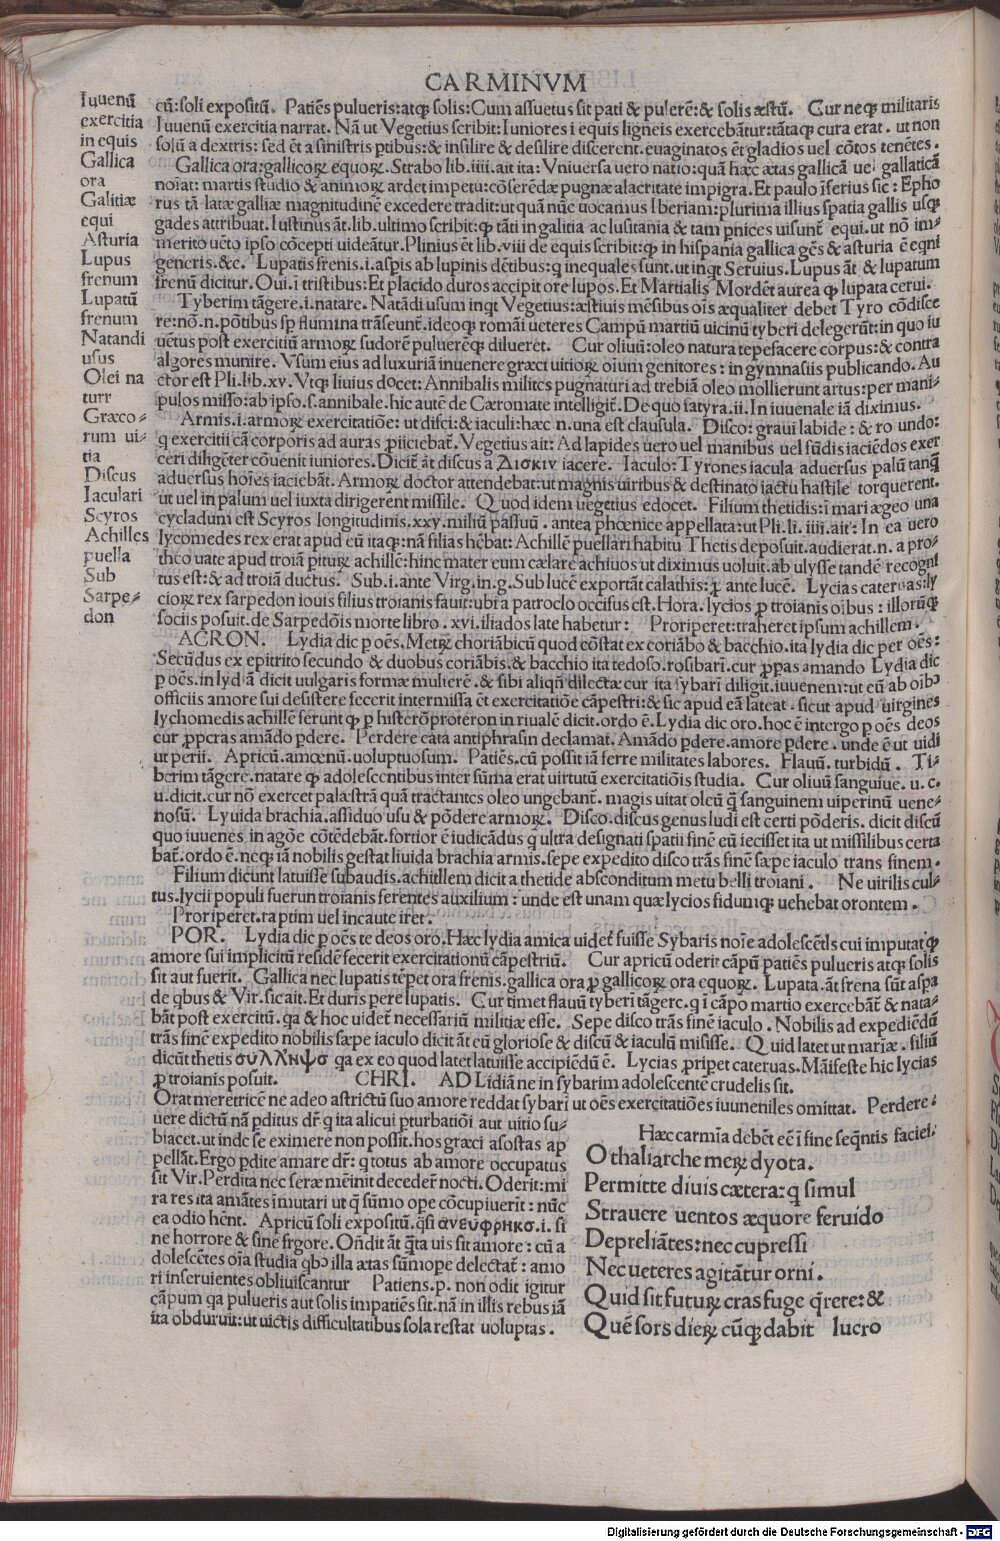 CARMINVM
Iuuenū
exercitia
in equis
Gallica
ora
Galitiæ
equi
Asturia
Lupus
frenum
Lupatū
frenum
Natandi
usus
Olei na
turr
Græco-
rum ui-
tia
Discus
Iaculari
Scyros
Achilles
puella
Sub
Sarpe-
don
cū: soli expositū. Patiēs pulueris: atq; solis: Cum assuetus sit pati & puluerē: & solis æstū. Cur neq; militaris
Iuuenū exercitia narrat. Nā ut Vegetius scribit: Iuniores i equis ligneis exercebātur: tātaq; cura erat. ut non
solū a dextris: sed ēt a sinistris ptibus: & insilire & desilire discerent. euaginatos ēt gladios uel cōtos tenētes.
Gallica ora: gallicoꝝ equoꝝ. Strabo lib. iiii. ait ita: Vniuersa uero natio: quā hæc ætas gallicā uel gallaticā
noīat: martis studio & animoꝝ ardet impetu: cōserēdæ pugnæ alacritate impigra. Et paulo īferius sic: Epho
rus tā latæ galliæ magnitudinē excedere tradit: ut quā nūc uocamus Iberiam: plurima illius spatia gallis usq;
gades attribuat. Iustinus āt. lib. ultimo scribit: ꝙ tāti in galitia ac lusitania & tam pnices uisunt equi. ut nō im-
merito uēto ipso cōcepti uideātur. Plinius ēt lib. viii de equis scribit: ꝙ in hispania gallica gēs & asturia ē eqni
generis. &c. Lupatis frenis. i. aspis ab lupinis dētibus: q inequales sunt. ut inqt Seruius. Lupus āt & lupatum
frenū dicitur. Oui. ī tristibus: Et placido duros accipit ore lupos. Et Martialis Mordēt aurea ꝙ lupata cerui.
Tyberim tāgere. i. natare. Natādi usum inqt Vegetius: æstiuis mēsibus oīs æqualiter debet Tyro cōdisce
re: nō. n. pōtibus sp flumina trāseunt. ideoq; romāi ueteres Campū martiū uicinū tyberi delegerūt: in quo iu
uētus post exercitiū armoꝝ sudorē puluerēq; dilueret. Cur oliuū: oleo natura tepefacere corpus: & contra
algores munire. Vsum eius ad luxuriā inuenere græci uitioꝝ oīum genitores: in gymnasiis publicando. Au
ctor est Pli. lib. xv. Vtq; liuius docet: Annibalis milites pugnaturi ad trebiā oleo mollierunt artus: per mani-
pulos misso: ab ipso. s. annibale. hic autē de Cæromate intelligit̄. De quo satyra. ii. In iuuenale iā diximus.
Armis. i. armoꝝ exercitatiōe: ut disci: & iaculi: hæc n. una est clausula. Disco: graui labide: & ro undo:
q exercitii cā corporis ad auras ꝓiiciebat̄. Vegetius ait: Ad lapides uero uel manibus uel fūdis iaciēdos exer
ceri diligēter cōuenit iuniores. Dicit̄ āt discus a Δισκιν iacere. Iaculo: Tyrones iacula aduersus palū tanq̄
aduersus hoīes iaciebāt. Armoꝝ doctor attendebat: ut magnis uiribus & destinato iactu hastile torquerent.
ut uel in palum uel iuxta dirigerent missile. Quod idem uegetius edocet. Filium thetidis: i mari ægeo una
cycladum est Scyros longitudinis. xxv. miliū passuū. antea phœnice appellata: ut Pli. li. iiii. ait: In ea uero
lycomedes rex erat apud eū itaq;: nā filias hēbat: Achillē puellari habitu Thetis deposuit. audierat. n. a pro-
theo uate apud troiā pituꝝ achillē: hinc mater eum cælare achiuos ut diximus uoluit. ab ulysse tandē recogni
tus est: & ad troiā ductus. Sub. i. ante Virg. in. g. Sub lucē exportāt calathis: ꝓ ante lucē. Lycias cateruas: ly
cioꝝ rex sarpedon iouis filius troianis fauit: ubi a patroclo occisus est. Hora. lycios ꝓ troianis oībus: illorūq;
sociis posuit. de Sarpedōis morte libro. xvi. iliados late habetur: Proriperet: traheret ipsum achillem.
ACRON. Lydia dic p oēs. Metꝝ choriābicū quod cōstat ex coriābo & bacchio. ita lydia dic per oēs:
Secūdus ex epitrito secundo & duobus coriābis. & bacchio ita tedoso. ro sibarī. cur ꝓpas amando Lydia dic
p oēs. in lydiā dicit uulgaris formæ mulierē. & sibi aliqn̄ dilectæ cur ita sybarī diligit. iuuenem: ut eū ab oībꝰ
officiis amore sui desistere fecerit intermissa ēt exercitatiōe cāpestri: & sic apud eā lateat. sicut apud uirgines
lychomedis achillē ferunt ꝙ p histerōproteron in riualē dicit. ordo ē. Lydia dic oro. hoc ē intergo p oēs deos
cur ꝓpcras amādo pdere. Perdere cata antiphrasin declamat. Amādo pdere. amore pdere. unde ē ut uidi
ut perii. Apricū. amœnū. uoluptuosum. Patiēs. cū possit iā ferre militates labores. Flauū. turbidū. Ti-
berim tāgere. natare ꝙ adolescentibus inter sūma erat uirtutū exercitatiōis studia. Cur oliuū sanguiue. u. c.
u. dicit. cur nō exercet palæstrā quā tractantes oleo ungebant̄. magis uitat oleū q̄ sanguinem uiperinū uene-
nosū. Lyuida brachia. assiduo usu & pōdere armoꝝ. Disco. discus genus ludi est certi pōderis. dicit discū
quo iuuenes in agōe cōtēdebāt. fortior ē iudicādus q ultra designati spatii finē eū iecisset ita ut missilibus certa
bat̄. ordo ē. neq; iā nobilis gestat liuida brachia armis. sepe expedito disco trās finē sæpe iaculo trans finem.
Filium dicunt latuisse subaudis. achillem dicit a thetide absconditum metu belli troiani. Ne uirilis cul-
tus. lycii populi fuerun troianis ferentes auxilium: unde est unam quæ lycios fidumq; uehebat orontem.
Proriperet. raptim uel incaute iret.
POR. Lydia dic p oēs te deos oro. Hæc lydia amica uidet̄ fuisse Sybaris noīe adolescētls cui imputat̄ ꝙ
amore sui implicitū residē fecerit exercitationū cāpestriū. Cur apricū oderit cāpū patiēs pulueris atq; solis
sit aut fuerit. Gallica nec lupatis tēpet ora frenis. gallica ora ꝓ gallicoꝝ ora equoꝝ. Lupata. āt frena sūt aspa
de qbus & Vir. sic ait. Et duris pere lupatis. Cur timet flauū tyberī tāgere. q ī cāpo martio exercebāt̄ & nata-
bāt post exercitū. qa & hoc uidet̄ necessariū militiæ esse. Sepe disco trās finē iaculo. Nobilis ad expediēdū
trās finē expedito nobilis sæpe iaculo dicit āt eū gloriose & discū & iaculū misisse. Quid latet ut marinæ. filiū
dicūt thetis συλληψσ qa ex eo quod latet latuisse accipiēdū ē. Lycias ꝓripet cateruas. Māifeste hic lycias
ꝓ troianis posuit. CHRI. AD Lidiā ne in sybarim adolescentē crudelis sit.
Orat meretricē ne adeo astrictū suo amore reddat sybarī ut oēs exercitatiōes iuueniles omittat. Perdere:
uere dictū nā pditus dr̄. q ita alicui pturbatiōi aut uitio su-
biacet. ut inde se eximere non possit. hos græci asostas ap
pellāt. Ergo pdite amare dr̄: q totus ab amore occupatus
sit Vir. Perdita nec seræ mēinit decedēr nocti. Oderit: mi
ra res ita amātes īmutari ut q̄ sūmo ope cōcupiuerit: nūc
ea odio hēnt. Apricū soli expositū. qsi ανευφρηκσ. i. si
ne horrore & sine frgore. Oñdit āt q̄ta uis sit amore: cū a
dolescētes oīa studia qbꝰ illa ætas sūmope delectat̄: amo
ri inseruientes obliuiscantur Patiens. p. non odit igitur
cāpum qa pulueris aut solis impatiēs sit. nā in illis rebus iā
ita obduruit: ut uictis difficultatibus sola restat uoluptas.
Hæc carmīa debēt eē ī fine seqntis faciei.
O thaliarche meꝝ dyota.
Permitte diuis cætera: q simul
Strauere uentos æquore feruido
Depreliātes: nec cupressi
Nec ueteres agitātur orni.
Quid sit futuꝝ cras fuge q̄rere: &
Quē sors dieꝝ cūq; dabit lucro
Digitalisierung gefördert durch die Deutsche Forschungsgemeinschaft - DFG